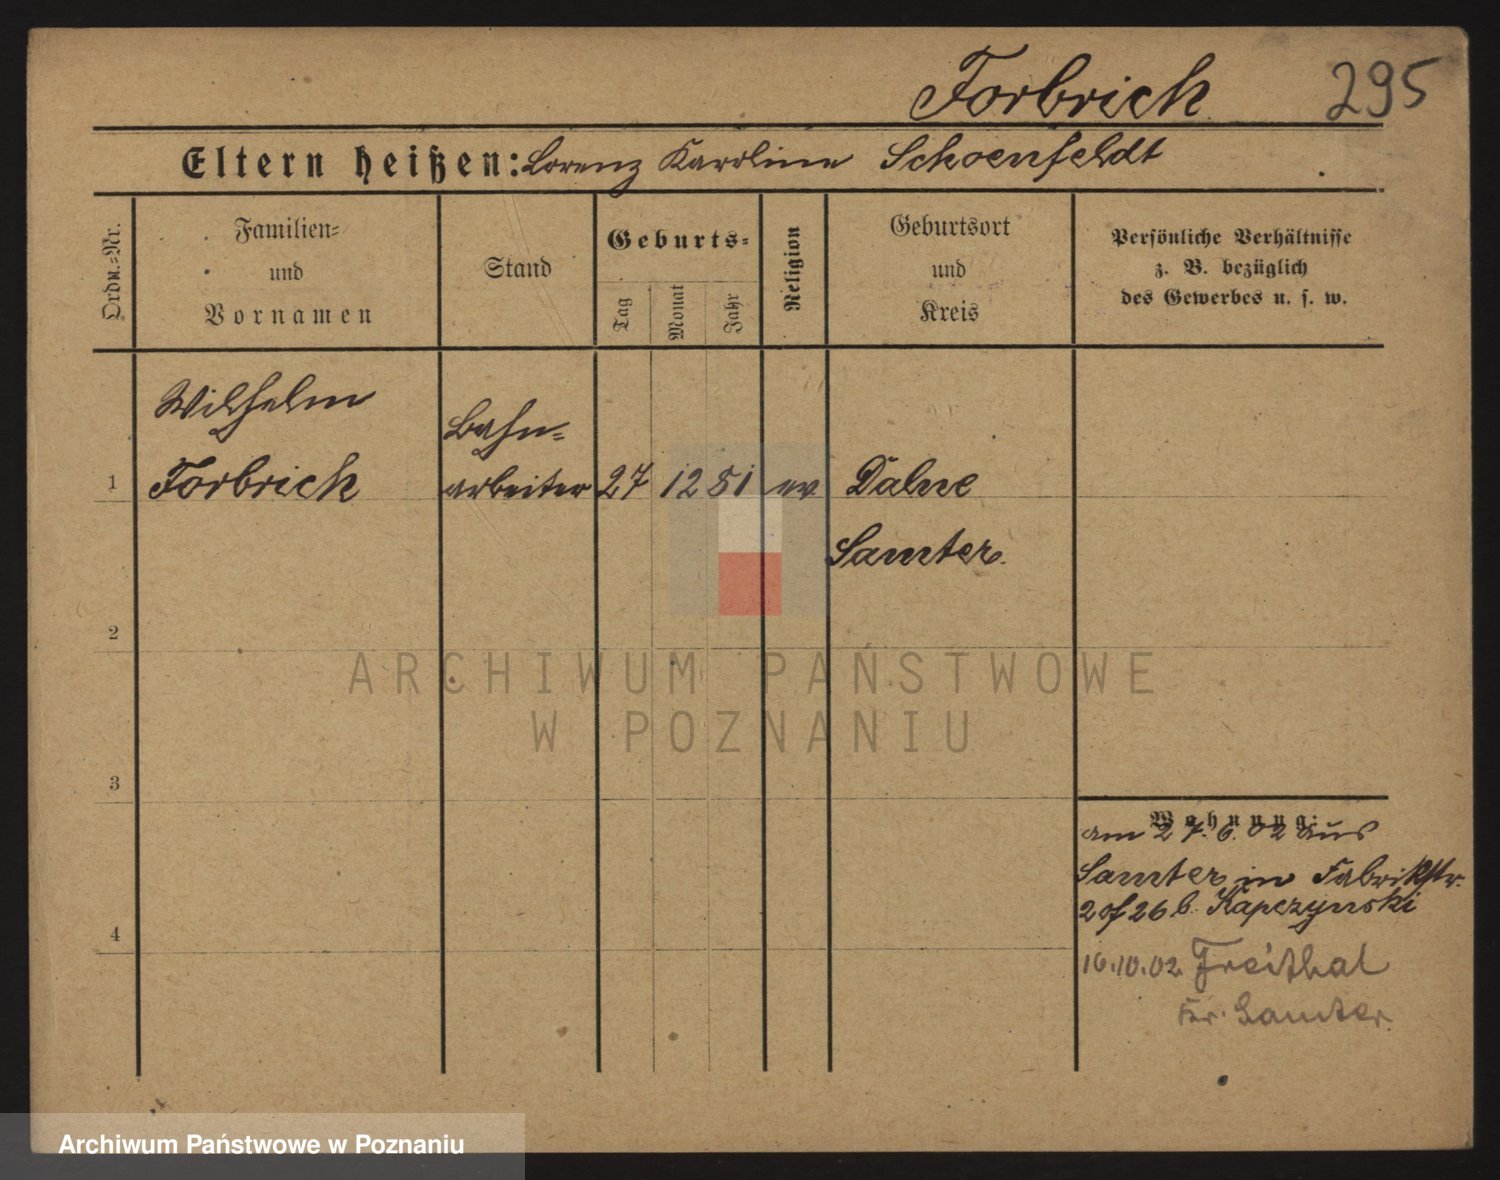 Forbrich 295
Eltern heißen: Lorenz Karoline Schoenfeldt
Ordn.=Nr.
Familien=
und
Vornamen
Stand
Geburts=
Tag
Monat
Jahr
Religion
Geburtsort
und
Kreis
Persönliche Verhältnisse
z. B. bezüglich
des Gewerbes u. s. w.
Wilhelm
Bahn=
1 Forbrich arbeiter 27 12 81 ev Dalne
Samter.
2
ARCHIWUM PAŃSTWOWE
W POZNANIU
3
Wohnung:
am 27. 6. 02 aus
Samter in Fabrikstr.
26 b. Kapczynski
4
10.10.02 Freithal
Kr. Samter.
Archiwum Państwowe w Poznaniu